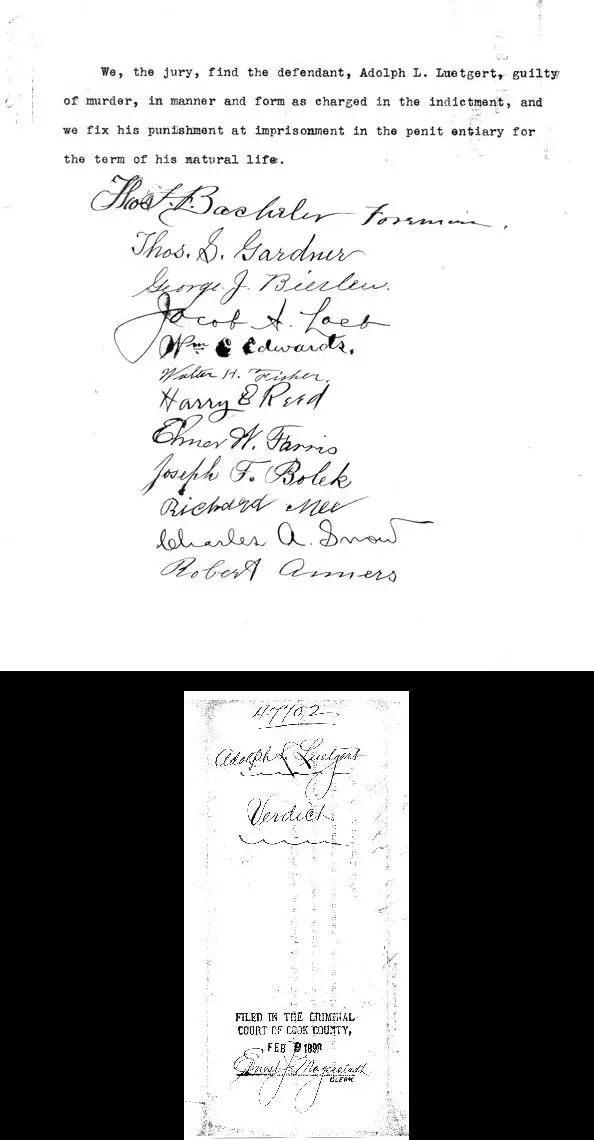 We, the jury, find the defendant, Adolph L. Luetgert, guilty
of murder, in manner and form as charged in the indictment, and
we fix his punishment at imprisonment in the penit entiary for
the term of his natural life.
Thos. F. Bacheler Foreman.
Thos. S. Gardner
George J.
Jacob A. Loeb
Wm C Edwards.
Walter H. Fisher.
Harry E Reed
Elmer W. Farris
Joseph F. Bolek
Richard Mee
Charles A. Snow
Robert Anners
Adolph L. Luetgert
Verdict
FILED IN THE CRIMINAL
COURT OF COOK COUNTY,
FEB 9 1898
CLERK